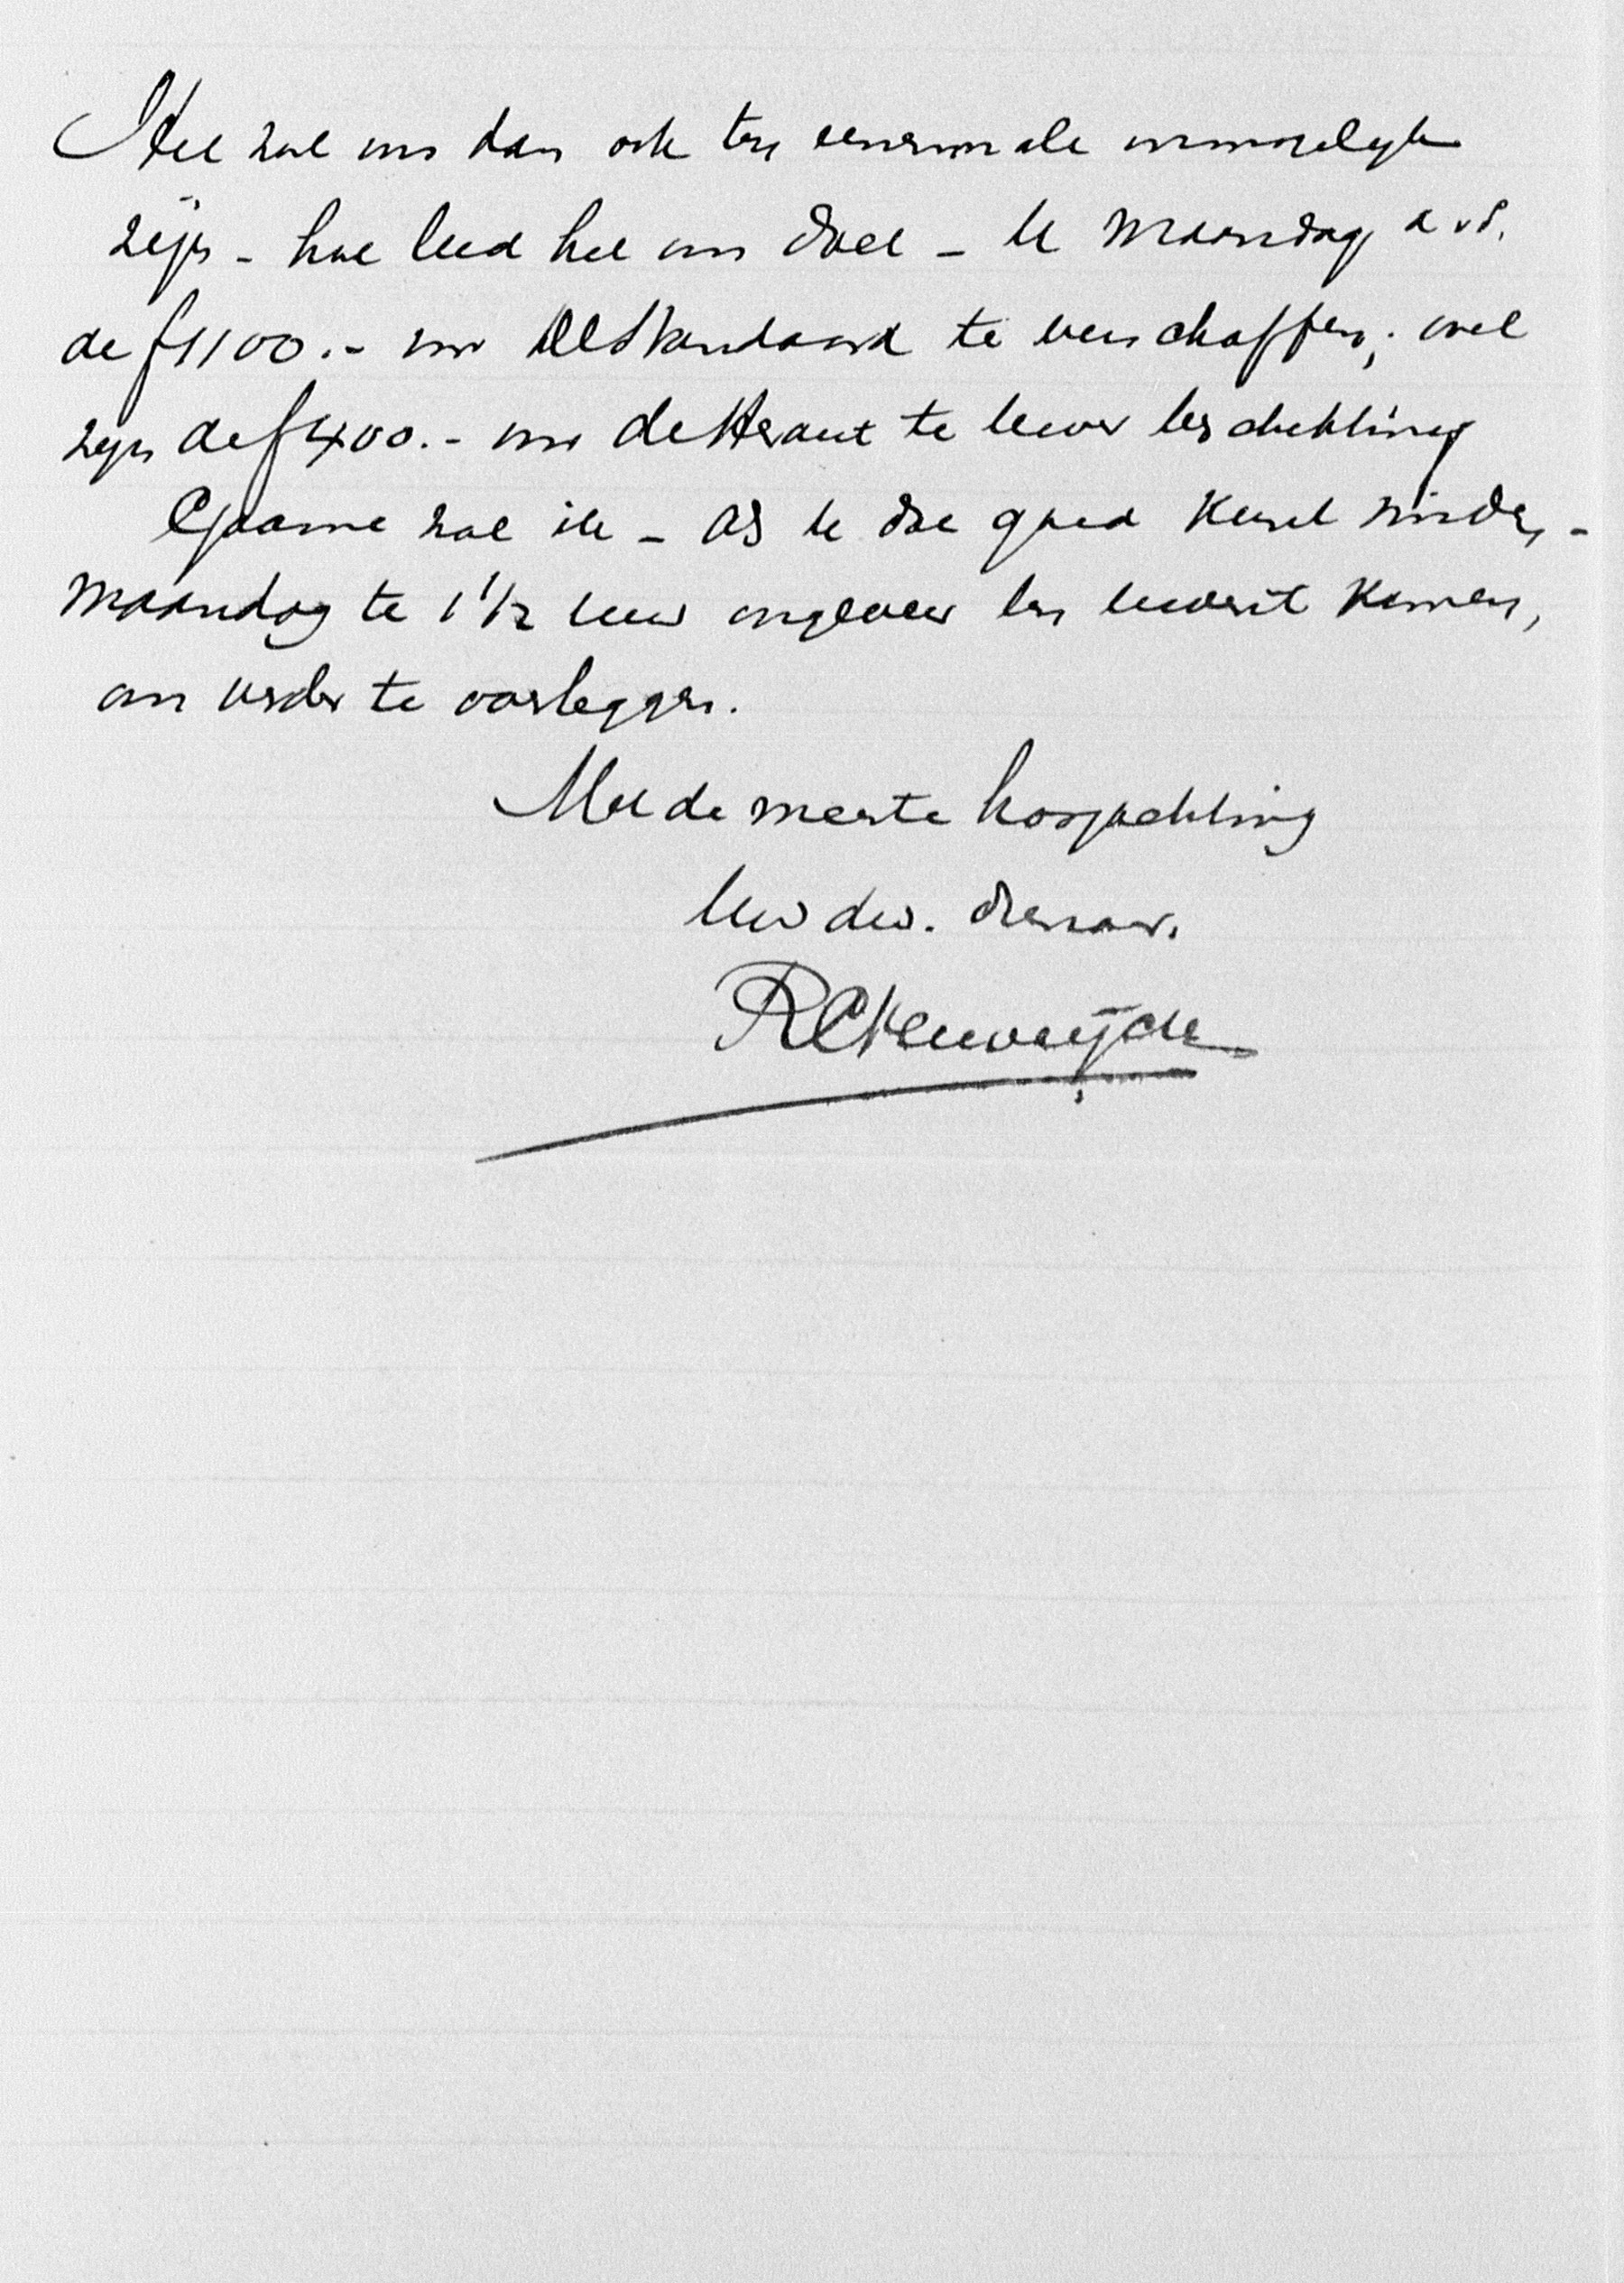 Het zal ons dan ook ten eenenmale onmogelyk
zijn - hoe leed het ons doet - U Maandag a.s.
de f1100.- voor De Standaard te verschaffen; wel
zyn de f400.- voor de Heraut te uwer beschikking
Gaarne zal ik - als U dit goed keurt vinden -
Maandag te 1 1/2 uur ongeveer ten uwent komen,
om verder te overleggen.
Met de meeste hoogachting
Uw dw. dienaar.